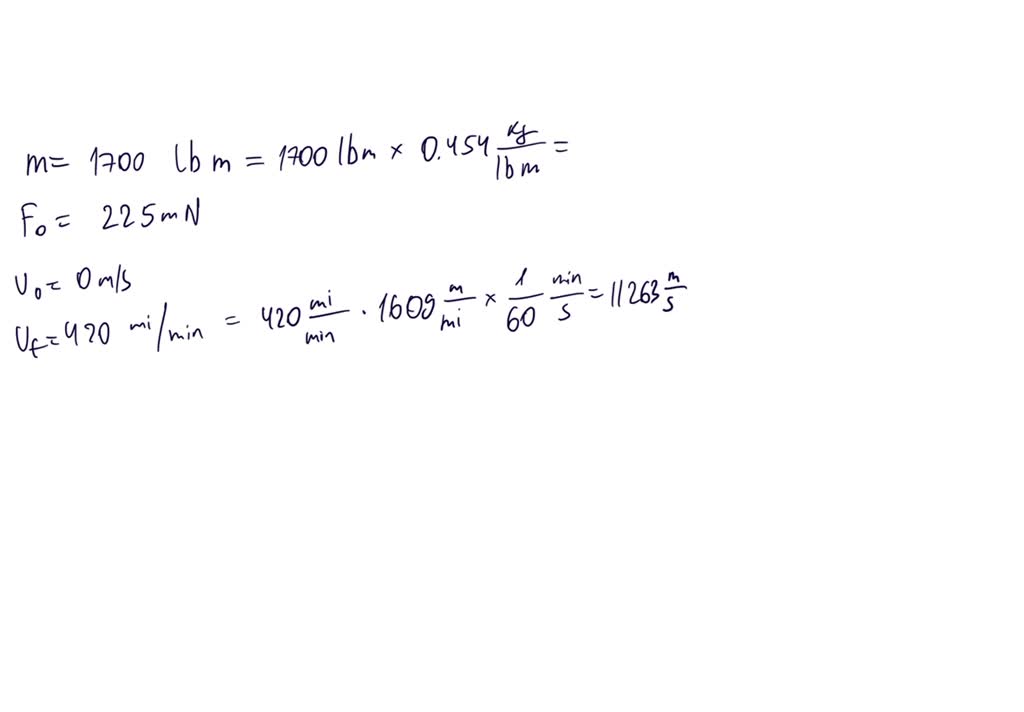 m = 1700 lbm = 1700 lbm × 0.454 kg/lbm =
F₀ = 225 mN
v₀ = 0 m/s
v_f = 420 mi/min = 420 mi/min · 1609 m/mi × 1/60 min/s = 11263 m/s